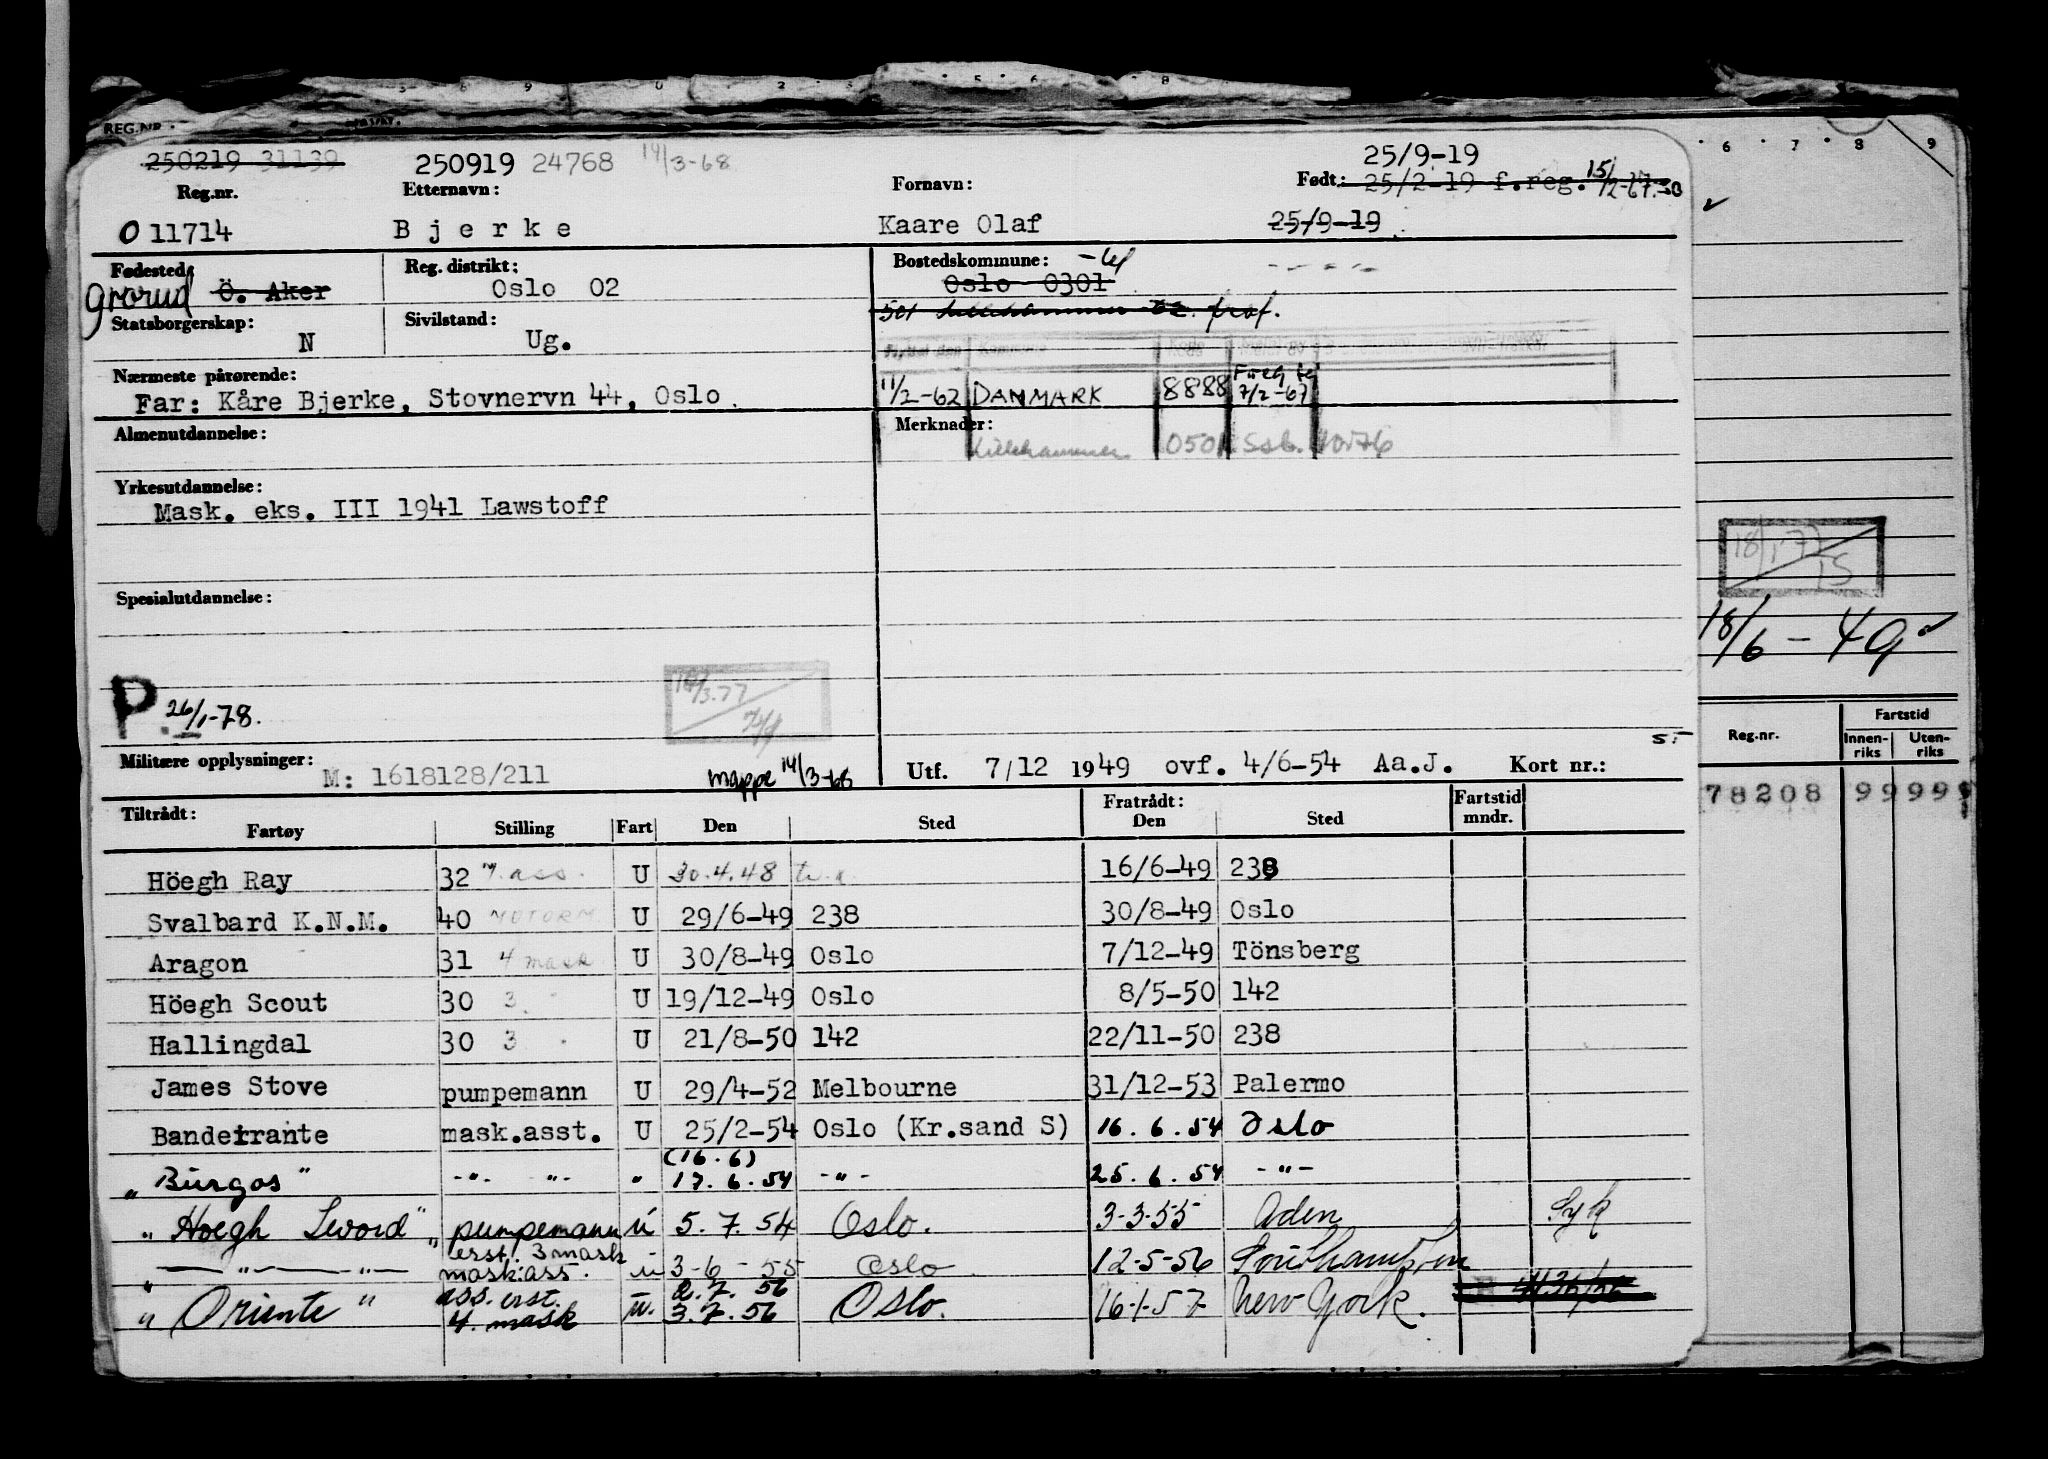 REG.NR.
250219 31139 250919 24768 14/3-68 25/9-19
Reg.nr. Etternavn: Fornavn: Født: 25/2-19 f.reg. 15/12-67
O 11714 Bjerke Kaare Olaf 25/9-19
Fødested: Reg. distrikt: Bostedskommune:
Grorud Ö. Aker Oslo 02 Oslo 0301
501 Lillehammer 02 fraf.
Statsborgerskap: Sivilstand:
N Ug.
Nærmeste pårørende:
Far: Kåre Bjerke, Stovnervn 44, Oslo.
11/2-62 DANMARK 8888 7/2-67
Almenutdannelse: Merknader:
Lillehammer 0501 Ssb.
Yrkesutdannelse:
Mask. eks. III 1941 Lawstoff
Spesialutdannelse:
P. 26/1-78.
Militære opplysninger: M: 1618128/211 mappe 14/3-68
Utf. 7/12 1949 ovf. 4/6-54 Aa.J. Kort nr.:
Tiltrådt: Fratrådt: Fartstid mndr.
Fartøy Stilling Fart Den Sted Den Sted
Höegh Ray 32 M.ass. U 30.4.48 16/6-49 238
Svalbard K.N.M. 40 MOTORM U 29/6-49 238 30/8-49 Oslo
Aragon 31 4 mask U 30/8-49 Oslo 7/12-49 Tönsberg
Höegh Scout 30 3 U 19/12-49 Oslo 8/5-50 142
Hallingdal 30 3 U 21/8-50 142 22/11-50 238
James Stove pumpemann U 29/4-52 Melbourne 31/12-53 Palermo
Bandeirante mask.asst. U 25/2-54 Oslo (Kr.sand S) 16.6.54 Oslo
(16.6)
"Burgos" -"- -"- " 17.6.54 -"- 25.6.54 -"-
"Hoegh Sword" pumpemann U 5.7.54 Oslo. 3-3-55 Aden Syk
erst. 3 mask
" — " — " — mask.ass. u 3-6-55 Oslo 12-5-56 Southampton
ass. erst. 2.7.56
"Oriente" 4. mask u. 3.7.56 Oslo. 16-1-57 New York.
6 7 8 9
18/1 77
15
18/6-49
Reg.nr. Fartstid
Innen-riks Uten-riks
78208 99999